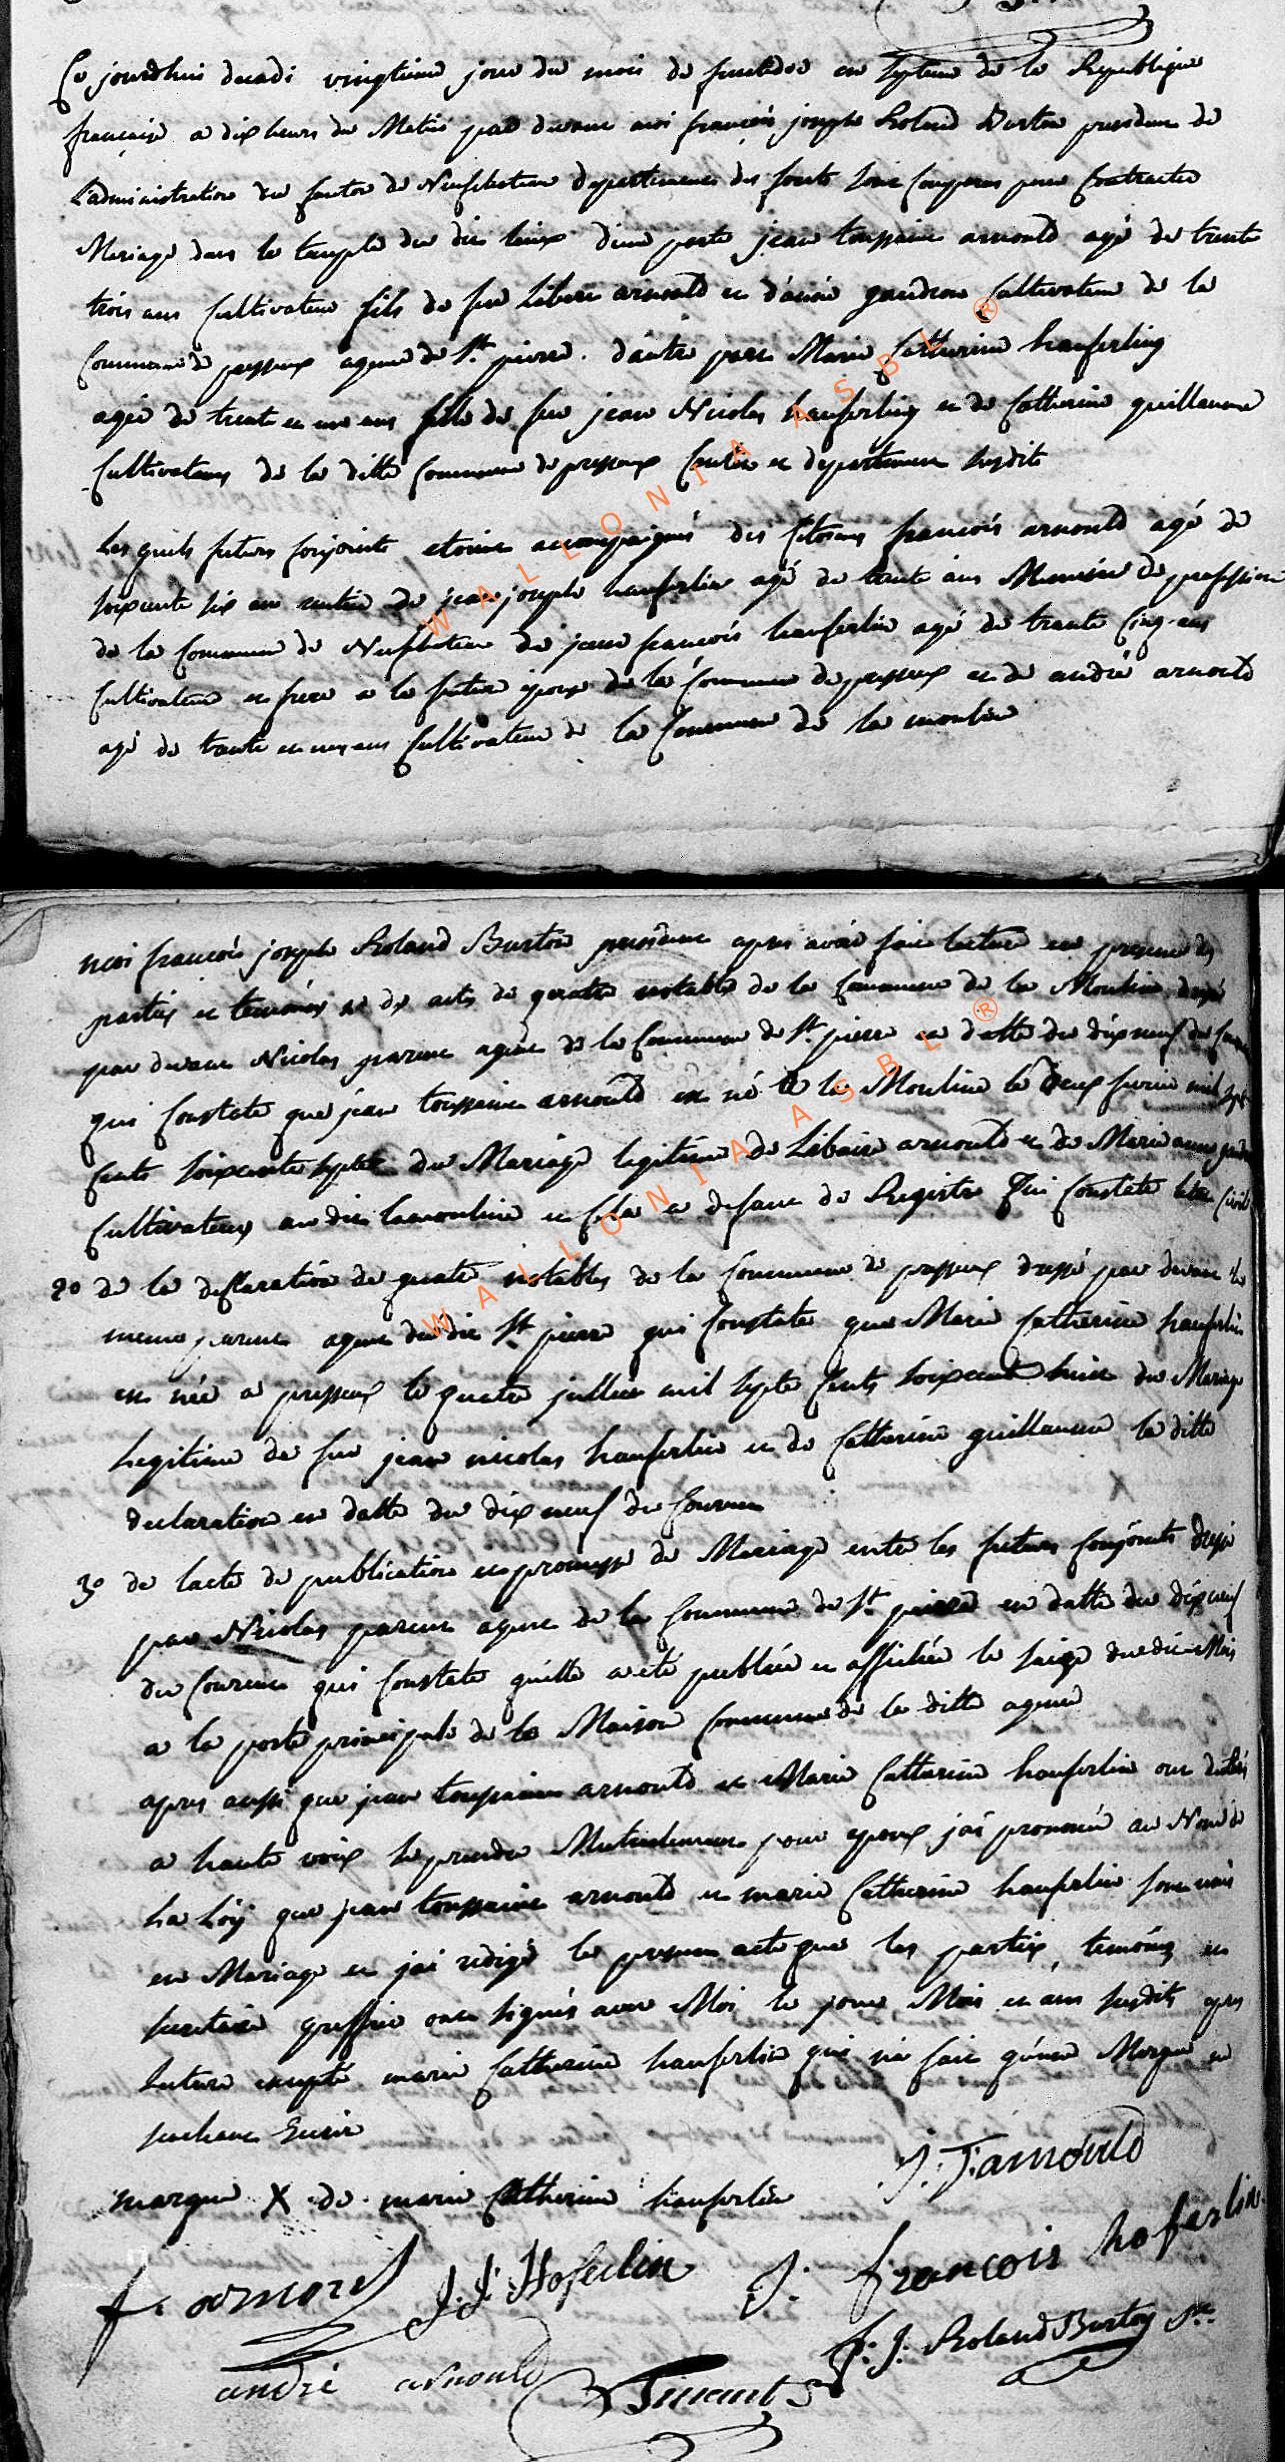 Ce jourdhui decadi vingtieme jour du mois de fructidor an septieme de la Republique
française a dix heurs du Matin par devant moi françois joseph Roland Burton president de
Ladministration du Canton de Neufchateau departement des forêts sont comparus pour Contracter
Mariage dans le temple du dit lieux d'une parte jean toussaint arnould agé de trente
trois ans Cultivateur fils de feu Libert arnould et d'anne gendron Cultivateur de la
Commune de presseux agence de St. pierre. d'autre part Marie Catherine hansferling
agée de trent et un ans fille de feu jean Nicolas hausferling et de Catherine guillaume
Cultivateurs de la ditte Commune de presseux Canton et departement susdits
Lesquels futurs conjoints etoient accompagnés des Citoiens francois arnould agé de
soixante six ans rentier de jean joseph hausferlin agé de trente ans Menuisier de profession
de la Commune de Neufchateau de jean francois hausferlin agé de trente Cinq ans
Cultivateur et frere a la future epouse de la Commune de presseux et de andré arnould
agé de trente et un ans Cultivateur de la Commune de la mouline
moi francois joseph Roland Burton president apres avoir fait lecture en presence des
parties et temoins 1o de acte de quatre notables de la Commune de la Mouline dressé
par devant Nicolas parent agent de la Commune de St. pierre en datte du dix neuf du Courant
qui Constate que jean toussaint arnould est né a la Mouline le deux fevrier mil sept
cents soixante sept du Mariage legitime de Libaire arnould et de Marie anne
Cultivateurs audit lamouline et cela a defaut de Registre qui Constate letat Civil
2o de la declaration de quatre notables de la Commune de presseux dressé par devant le
meme parent agent du dit St. pierre qui Constate que Marie Catherine hausferlin
est née a presseux le quatre juillet mil septe cents soixante huit du Mariage
Legitime de feu jean nicolas hausferlin et de Catherine guillaume la ditte
declaration en datte du dix neuf du Courant
3o de lacte de publication et promesse de Mariage entre les futurs Conjoints dressé
par Nicolas parent agent de la Commune de St. pierre en datte du dix neuf
du Courent qui Constate qu'elle a été publiée et affichée le seize du dit Mois
a la porte principale de la Maison Commune de la ditte agence
apres aussi que jean toussaint arnould et Marie Catherine hausferlin ont declarés
a haute voix se prendre Mutuelement pour epoux jai prononcé au Nom de
La Loij que jean toussaint arnould et marie Catherine hausferlin sont unis
en Mariage et jai redigé le present acte que les parties temoins et
secretaire greffier ont signés avec Moi le jour Mois et ans susdits apres
lecture excepté marie Catherine hausferlin qui na fait qune Marque ne
sachant Ecrire
marque X de marie Catherine hausferlin
J. T. arnould
f. arnould J. J. Hoferlin J. francois hoferlin
F. J. Roland Burton
andré arnould Tinant
WALLONIA ASBL ®
WALLONIA ASBL ®